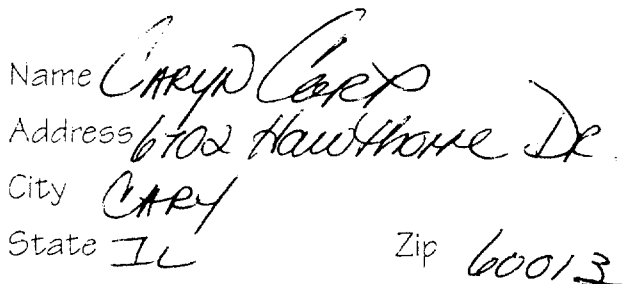 Name CARYN CORP
Address 6702 HAWTHORNE DR.
City CARY
State IL Zip 60013